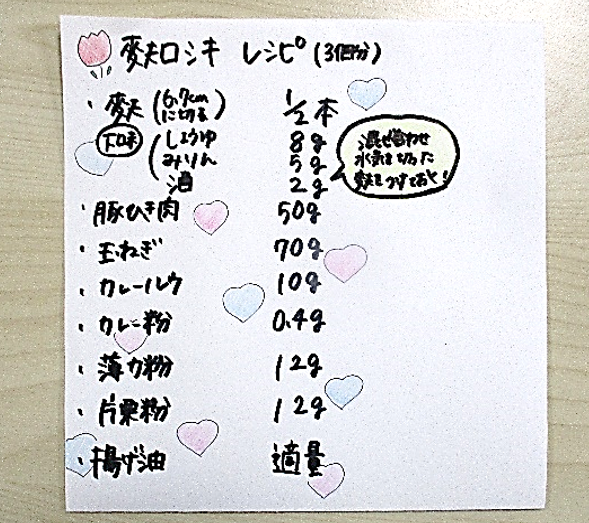 麩ロシキ レシピ (3個分)
・麩 (6.7cmに切る) 1/2本
下味 (しょうゆ 8g
みりん 5g
酒 2g
混ぜ合わせ
水気を切った
麩をつけておく!
・豚ひき肉 50g
・玉ねぎ 70g
・カレールウ 10g
・カレー粉 0.4g
・薄力粉 12g
・片栗粉 12g
・揚げ油 適量